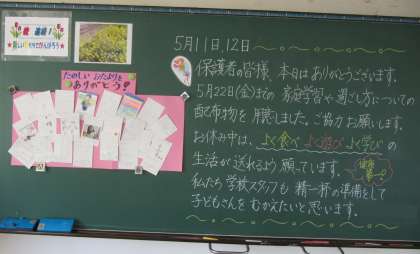 祝 進級!
たのしい おたよりを
ありがとう!
5月11日,12日
保護者の皆様、本日はありがとうございます。
5月22日(金)までの 家庭学習や過ごし方についての
配布物を用意しました。ご協力お願いします。
お休み中は、よく食べ よく遊び よく学び の
生活が送れるよう願っています。
健康第一
私たち学校スタッフも 精一杯の準備をして
子どもさんを むかえたいと思います。